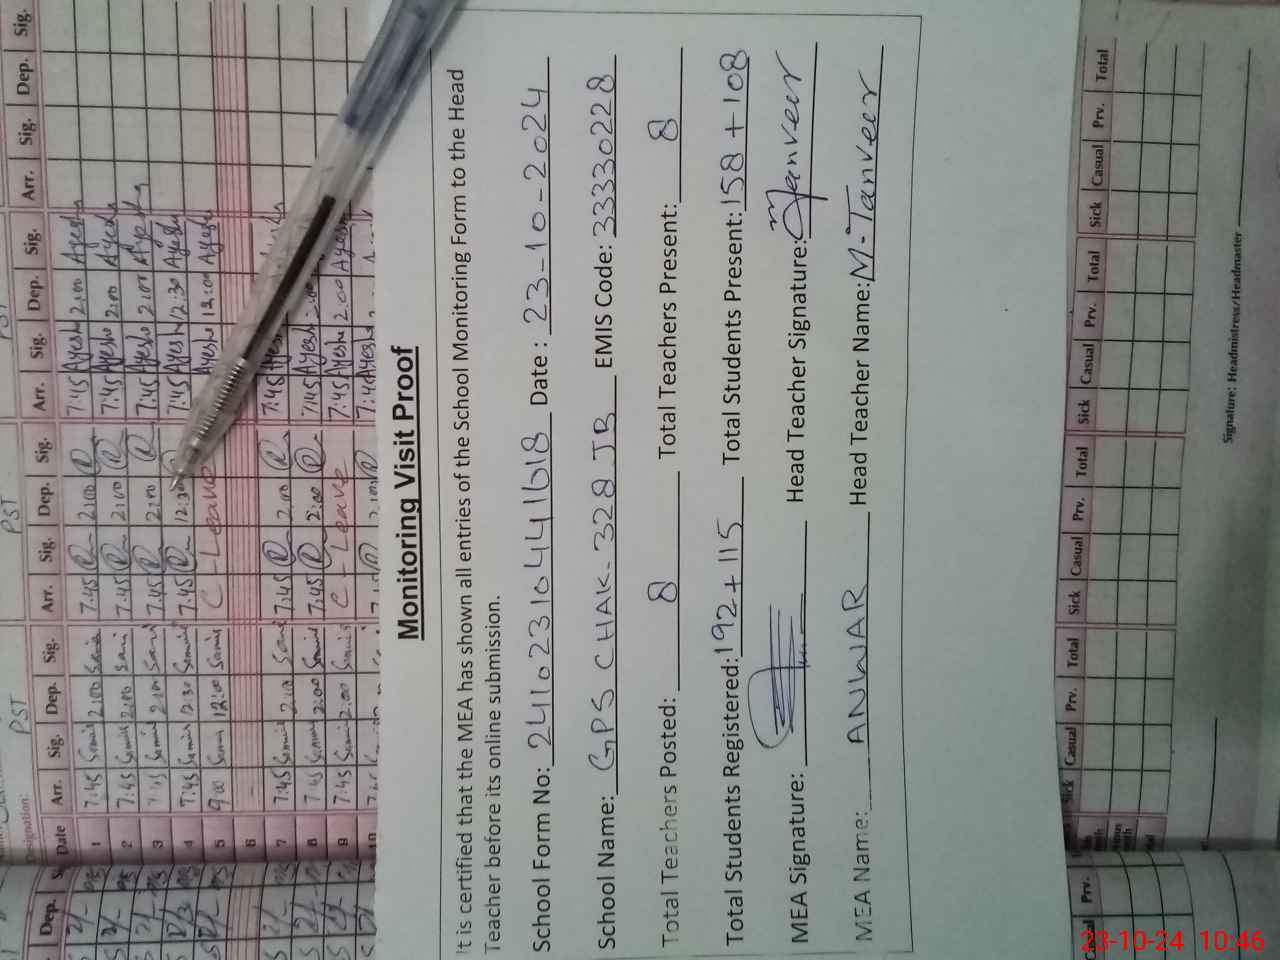 Monitoring Visit Proof
It is certified that the MEA has shown all entries of the School Monitoring Form to the Head
Teacher before its online submission.
School Form No: 241023104441618 Date : 23-10-2024
School Name: GPS CHAK-328 JB EMIS Code: 33330228
Total Teachers Posted: 8 Total Teachers Present: 8
Total Students Registered: 192+115 Total Students Present: 158+108
MEA Signature: Head Teacher Signature: Tanveer
MEA Name: ANWAR Head Teacher Name: M.Tanveer
PST PST
Designation:
Dep. Date Arr. Sig. Dep. Sig. Arr. Sig. Dep. Sig. Arr. Sig. Dep. Sig. Arr. Sig. Dep. Sig.
1 7:45 Samia 2:00 7:45 2:00 7:45 Ayesha 2:00 Ayesha
2 7:45 Samia 2:00 7:45 2:00 7:45 Ayesha 2:00 Ayesha
3 7:45 Samia 2:00 7:45 2:00 7:45 Ayesha 2:00 Ayesha
4 7:45 Samia 12:30 Samia 7:45 12:30 7:45 Ayesha 12:30 Ayesha
5 9:00 Samia 12:00 Samia C-Leave Ayesha 12:00 Ayesha
6
7 7:45 Samia 2:00 7:45 2:00 7:45 Ayesha
8 7:45 Samia 2:00 Samia 7:45 2:00 7:45 Ayesha 2:00
9 7:45 Samia 2:00 Samia C-Leave 7:45 Ayesha 2:00 Ayesha
10
Prv. Sick Casual Prv. Total Sick Casual Prv. Total Sick Casual Prv. Total Sick Casual Prv. Total
Signature: Headmistress/Headmaster
23-10-24 10:46